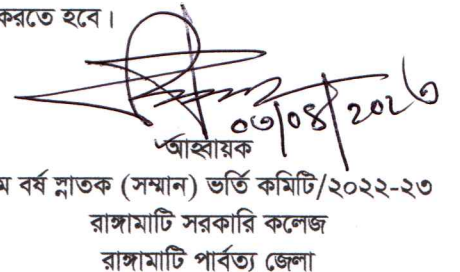 করতে হবে।
০৩/০৪/২০২৩
আহ্বায়ক
ম বর্ষ স্নাতক (সম্মান) ভর্তি কমিটি/২০২২-২৩
রাঙ্গামাটি সরকারি কলেজ
রাঙ্গামাটি পার্বত্য জেলা